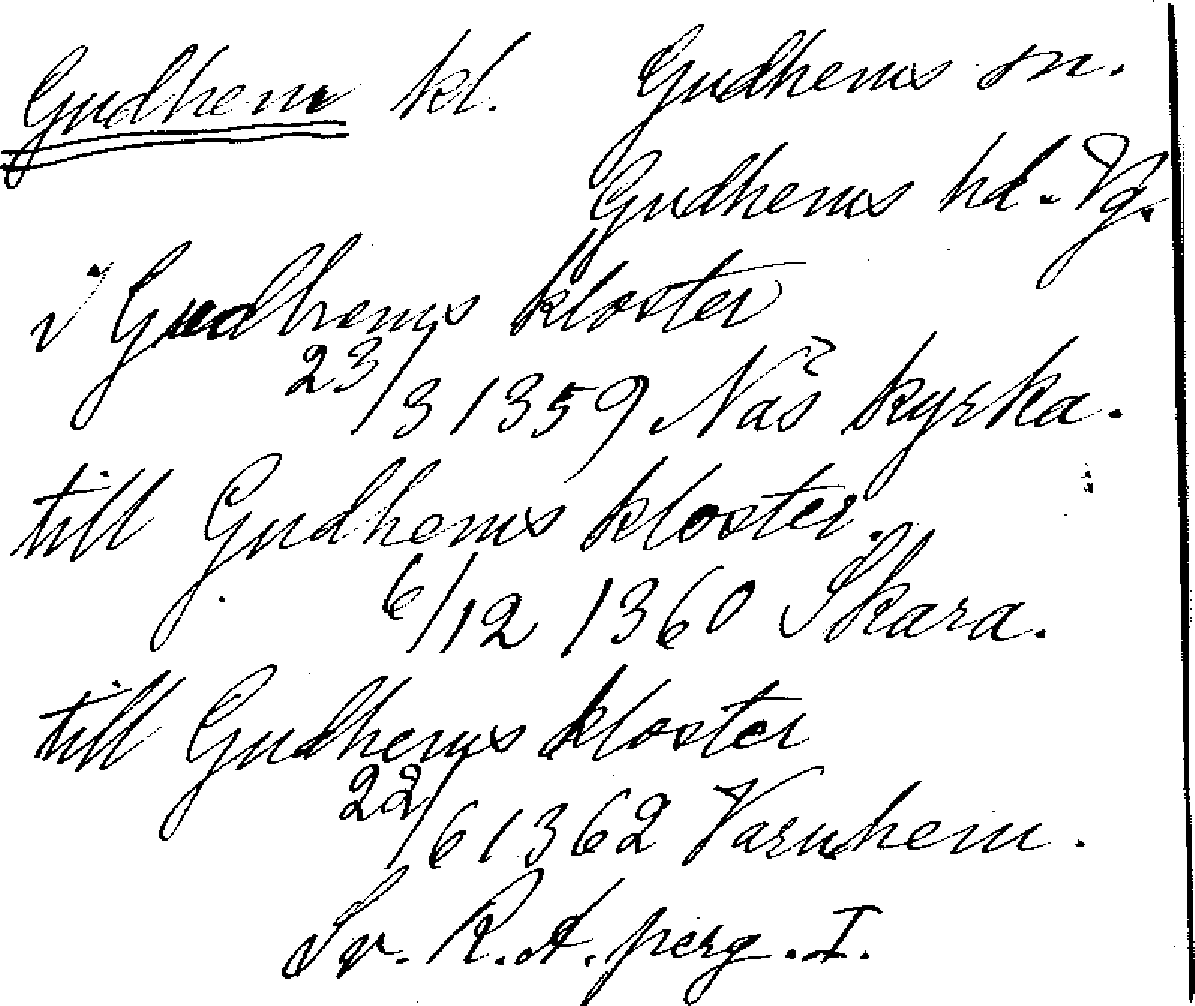 Gudhem kl. Gudhems sn.
Gudhems hd. Vg.
i Gudhems kloster
23/3 1359 Näs kyrka.
till Gudhems kloster.
6/12 1360 Skara.
till Gudhems kloster
22/6 1362 Varnhem.
Sv. R. A. perg. I.